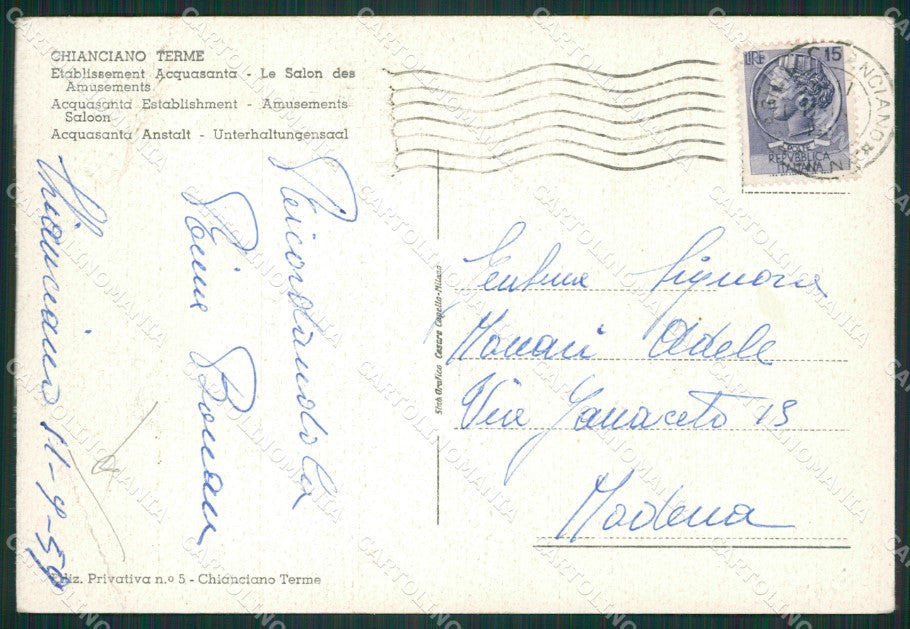 CHIANCIANO TERME
Etablissement Acquasanta - Le Salon des
Amusements
Acquasanta Establishment - Amusements
Saloon
Acquasanta Anstalt - Unterhaltungensaal
LIRE 15
REPVBBLICA
ITALIANA
Chianciano 11-9-59
Ricordandola
Gent.ma Signora
Monari Adele
Via 13
Modena
Stab. Grafico Cesare Capello-Milano
Ediz. Privativa n.o 5 - Chianciano Terme
CARTOLINOMANIA